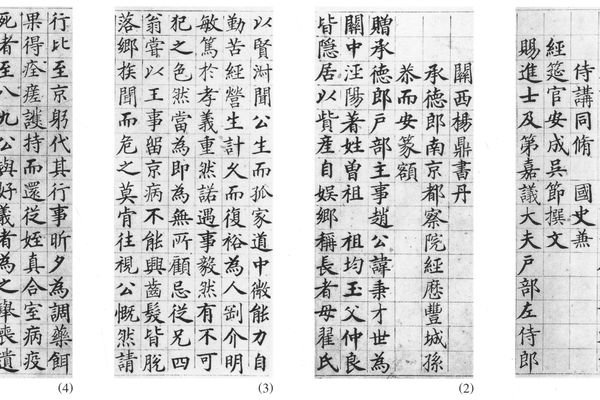 侍講同脩 國史兼
經筵官安成吳節撰文
賜進士及第嘉議大夫戶部左侍郎
關西楊鼎書丹
承德郎南京都察院經歷豐城孫
恭而安篆額
贈承德郎戶部主事趙公諱秉才世為
關中涇陽著姓曾祖 祖均玉父仲良
皆隱居以貲產自娛鄉稱長者母翟氏
(2)
以賢淑聞公生而孤家道中微能力自
勤苦經營生計久而復裕為人剛介明
敏篤於孝義重然諾遇事毅然有不可
犯之色然當為即為無所顧忌從兄四
翁嘗以王事留京病不能興齒髮皆脫
落鄉族聞而危之莫肯往視公慨然請
(3)
行比至京躬代其行事昕夕為調藥餌
果得痊瘥護持而還從姪真合室病疫
死者至八九公與好義者為之舉喪遺
(4)